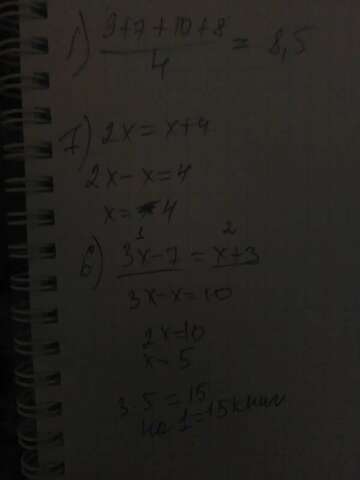 1) 9+7+10+8 / 4 = 8,5
7) 2x = x+4
2x-x=4
x=4
1 2
6) 3x-7 = x+3
3x-x=10
2x=10
x=5
3·5=15
на 1=15 книг